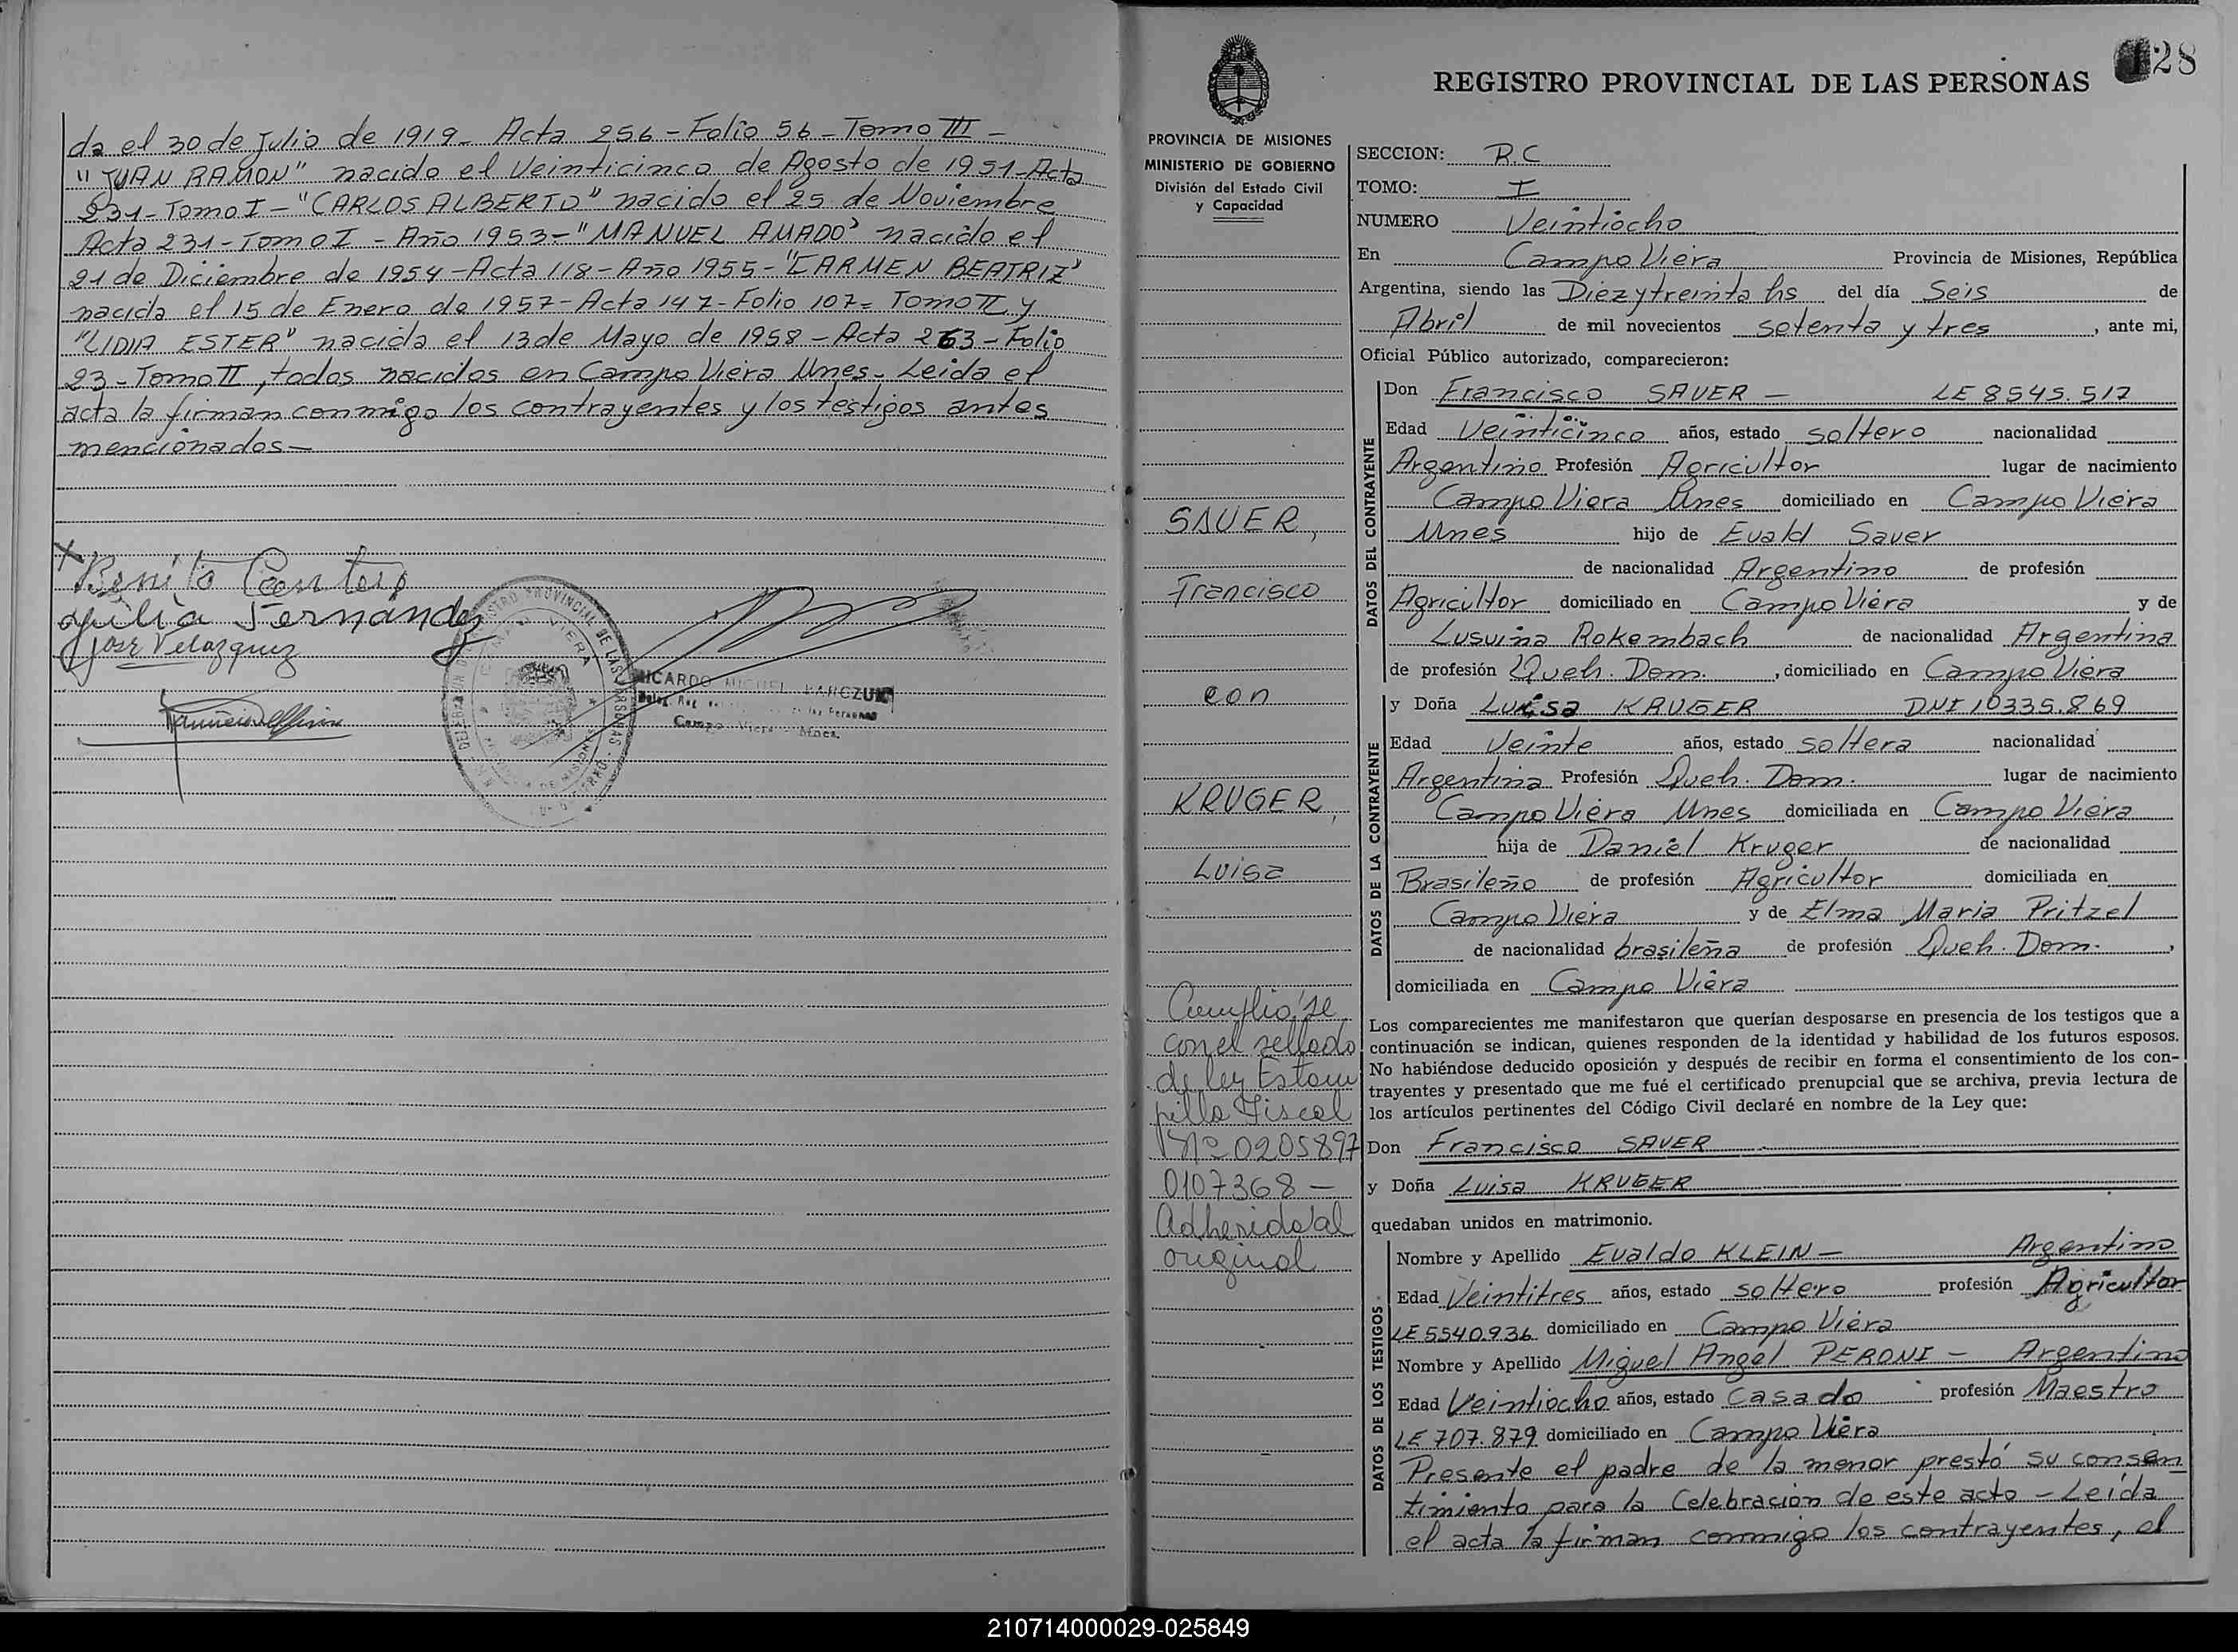 da el 30 de Julio de 1919- Acta 256 - Folio 56 - Tomo III -
"JUAN RAMON" nacido el Veinticinco de Agosto de 1951- Acta
231- Tomo I - "CARLOS ALBERTO" nacido el 25 de Noviembre
Acta 231- Tomo I - Año 1953- "MANUEL AMADO" nacido el
21 de Diciembre de 1954 - Acta 118 - Año 1955 - "CARMEN BEATRIZ"
nacida el 15 de Enero de 1957 - Acta 147 - Folio 107= Tomo II y
"LIDIA ESTER" nacida el 13 de Mayo de 1958 - Acta 263 - Folio
23 - Tomo II, todos nacidos en Campo Viera Mnes - Leida el
acta la firman conmigo los contrayentes y los testigos antes
mencionados -
X
Benito
Julia Fernandez
Jose Velazquez
RICARDO MIGUEL
Campo Viera - Mnes.
128
REGISTRO PROVINCIAL DE LAS PERSONAS
PROVINCIA DE MISIONES
MINISTERIO DE GOBIERNO
División del Estado Civil
y Capacidad
SAUER,
Francisco
con
KRUGER,
Luisa
Cumplió se
con el sellado
de ley Estam
pilla Fiscal
Nº 0205897
0107368 -
Adherido al
original
SECCION: R.C
TOMO: I
NUMERO Veintiocho
En Campo Viera Provincia de Misiones, República
Argentina, siendo las Diez y treinta hs del día Seis de
Abril de mil novecientos setenta y tres, ante mi,
Oficial Público autorizado, comparecieron:
DATOS DEL CONTRAYENTE
Don Francisco SAUER - LE 8545.517
Edad Veinticinco años, estado soltero nacionalidad
Argentino Profesión Agricultor lugar de nacimiento
Campo Viera Mnes domiciliado en Campo Viera
Mnes hijo de Evald Sauer
de nacionalidad Argentino de profesión
Agricultor domiciliado en Campo Viera y de
Lusvina Rokembach de nacionalidad Argentina
de profesión Queh. Dom. , domiciliado en Campo Viera
DATOS DE LA CONTRAYENTE
y Doña Luisa KRUGER DNI 10335.869
Edad Veinte años, estado soltera nacionalidad
Argentina Profesión Queh. Dom. lugar de nacimiento
Campo Viera Mnes domiciliada en Campo Viera
hija de Daniel Kruger de nacionalidad
Brasileño de profesión Agricultor domiciliada en
Campo Viera y de Elma Maria Pritzel
de nacionalidad brasileña de profesión Queh. Dom. ,
domiciliada en Campo Viera
Los comparecientes me manifestaron que querían desposarse en presencia de los testigos que a
continuación se indican, quienes responden de la identidad y habilidad de los futuros esposos.
No habiéndose deducido oposición y después de recibir en forma el consentimiento de los con-
trayentes y presentado que me fué el certificado prenupcial que se archiva, previa lectura de
los artículos pertinentes del Código Civil declaré en nombre de la Ley que:
Don Francisco SAUER
y Doña Luisa KRUGER
quedaban unidos en matrimonio.
DATOS DE LOS TESTIGOS
Nombre y Apellido Evaldo KLEIN - Argentino
Edad Veintitres años, estado soltero profesión Agricultor
LE 5540.936 domiciliado en Campo Viera
Nombre y Apellido Miguel Angel PERONI - Argentino
Edad Veintiocho años, estado Casado profesión Maestro
LE 707.879 domiciliado en Campo Viera
Presente el padre de la menor prestó su consen
timiento para la Celebracion de este acto - Leída
el acta la firman conmigo los contrayentes, el
210714000029-025849